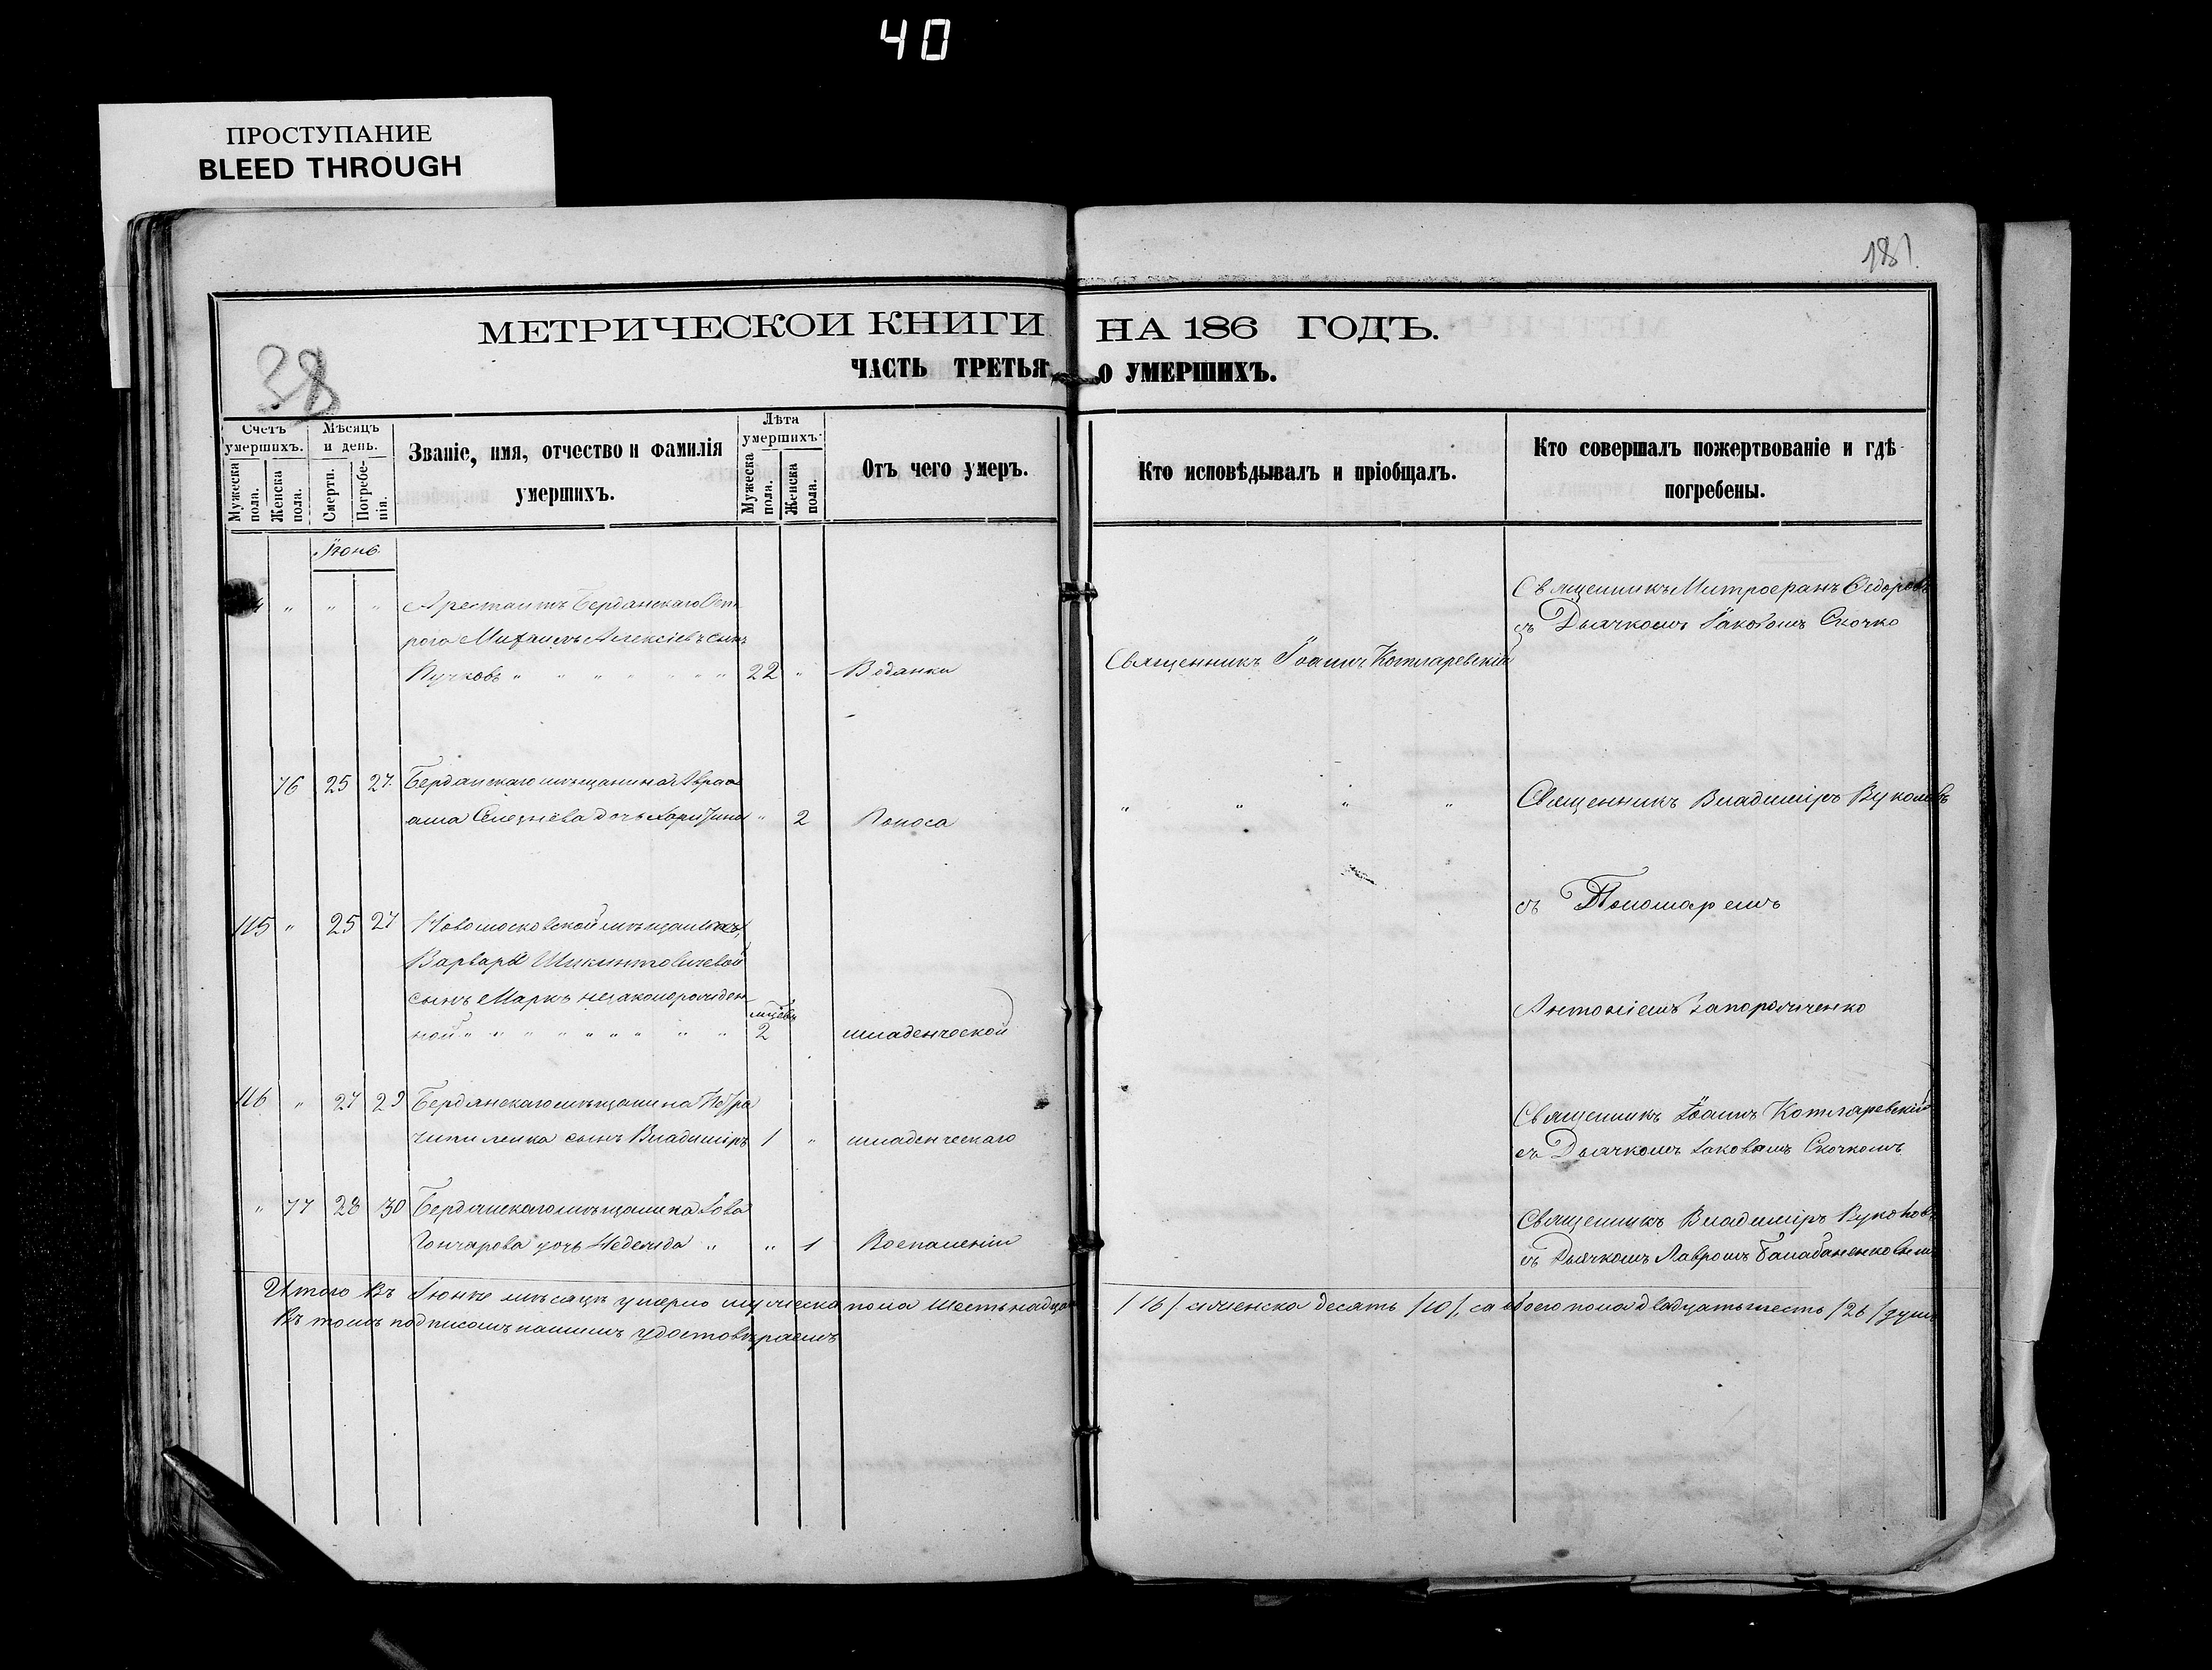 40
ПРОСТУПАНИЕ
BLEED THROUGH
181
МЕТРИЧЕСКОЙ КНИГИ НА 186 ГОДЪ.
38
ЧАСТЬ ТРЕТЬЯ, О УМЕРШИХЪ.
Счетъ умершихъ.
Мужеска пола.
Женска пола.
Мѣсяцъ и день.
Смерти.
Погребенія.
Званіе, имя, отчество и фамилія умершихъ.
Лѣта умершихъ.
Мужеска пола.
Женска пола.
Отъ чего умеръ.
Кто исповѣдывалъ и пріобщалъ.
Кто совершалъ пожертвованіе и гдѣ погребены.
Іюнь
" " " Арестантъ Бердянскаго Ост
рога Михаилъ Алексіевъ сынъ
Пучковъ " " " " " " " 22 " Водянки
Священникъ Іоаннъ Котляревскій
Священникъ Митрофанъ Ѳедоровъ
съ Дьячкомъ Іаковомъ Скочко
76 25 27 Бердянскаго мѣщанина Авра
ама дочь Харитина " 2 Поноса
" " " "
Священникъ Владиміръ Вуколовъ
съ Пономаремъ
Антоніемъ Запорожченко
115 " 25 27 Новомосковской мѣщанки
Варвары
сынъ Маркъ незаконорожден
ной " " " " " " " " мцевъ 2 младенческой
116 " 27 29 Бердянскаго мѣщанина Петра
сынъ Владиміръ 1 " младенческаго
Священникъ Іоаннъ Котляревскій
съ Дьячкомъ Іаковомъ Скочкомъ
" 77 28 30 Бердянскаго мѣщанина Іова
Гончарова дочь Надежда " " 1 Воспаленіи
Священникъ Владиміръ Вуколовъ
съ Дьячкомъ Лавромъ
Итого въ Іюнѣ мѣсяцѣ умерло мужеска пола шестьнадца /16/ женска десять /10/, а обоего пола двадцать шесть /26/ душъ
Въ томъ подписомъ нашимъ удостовѣряемъ